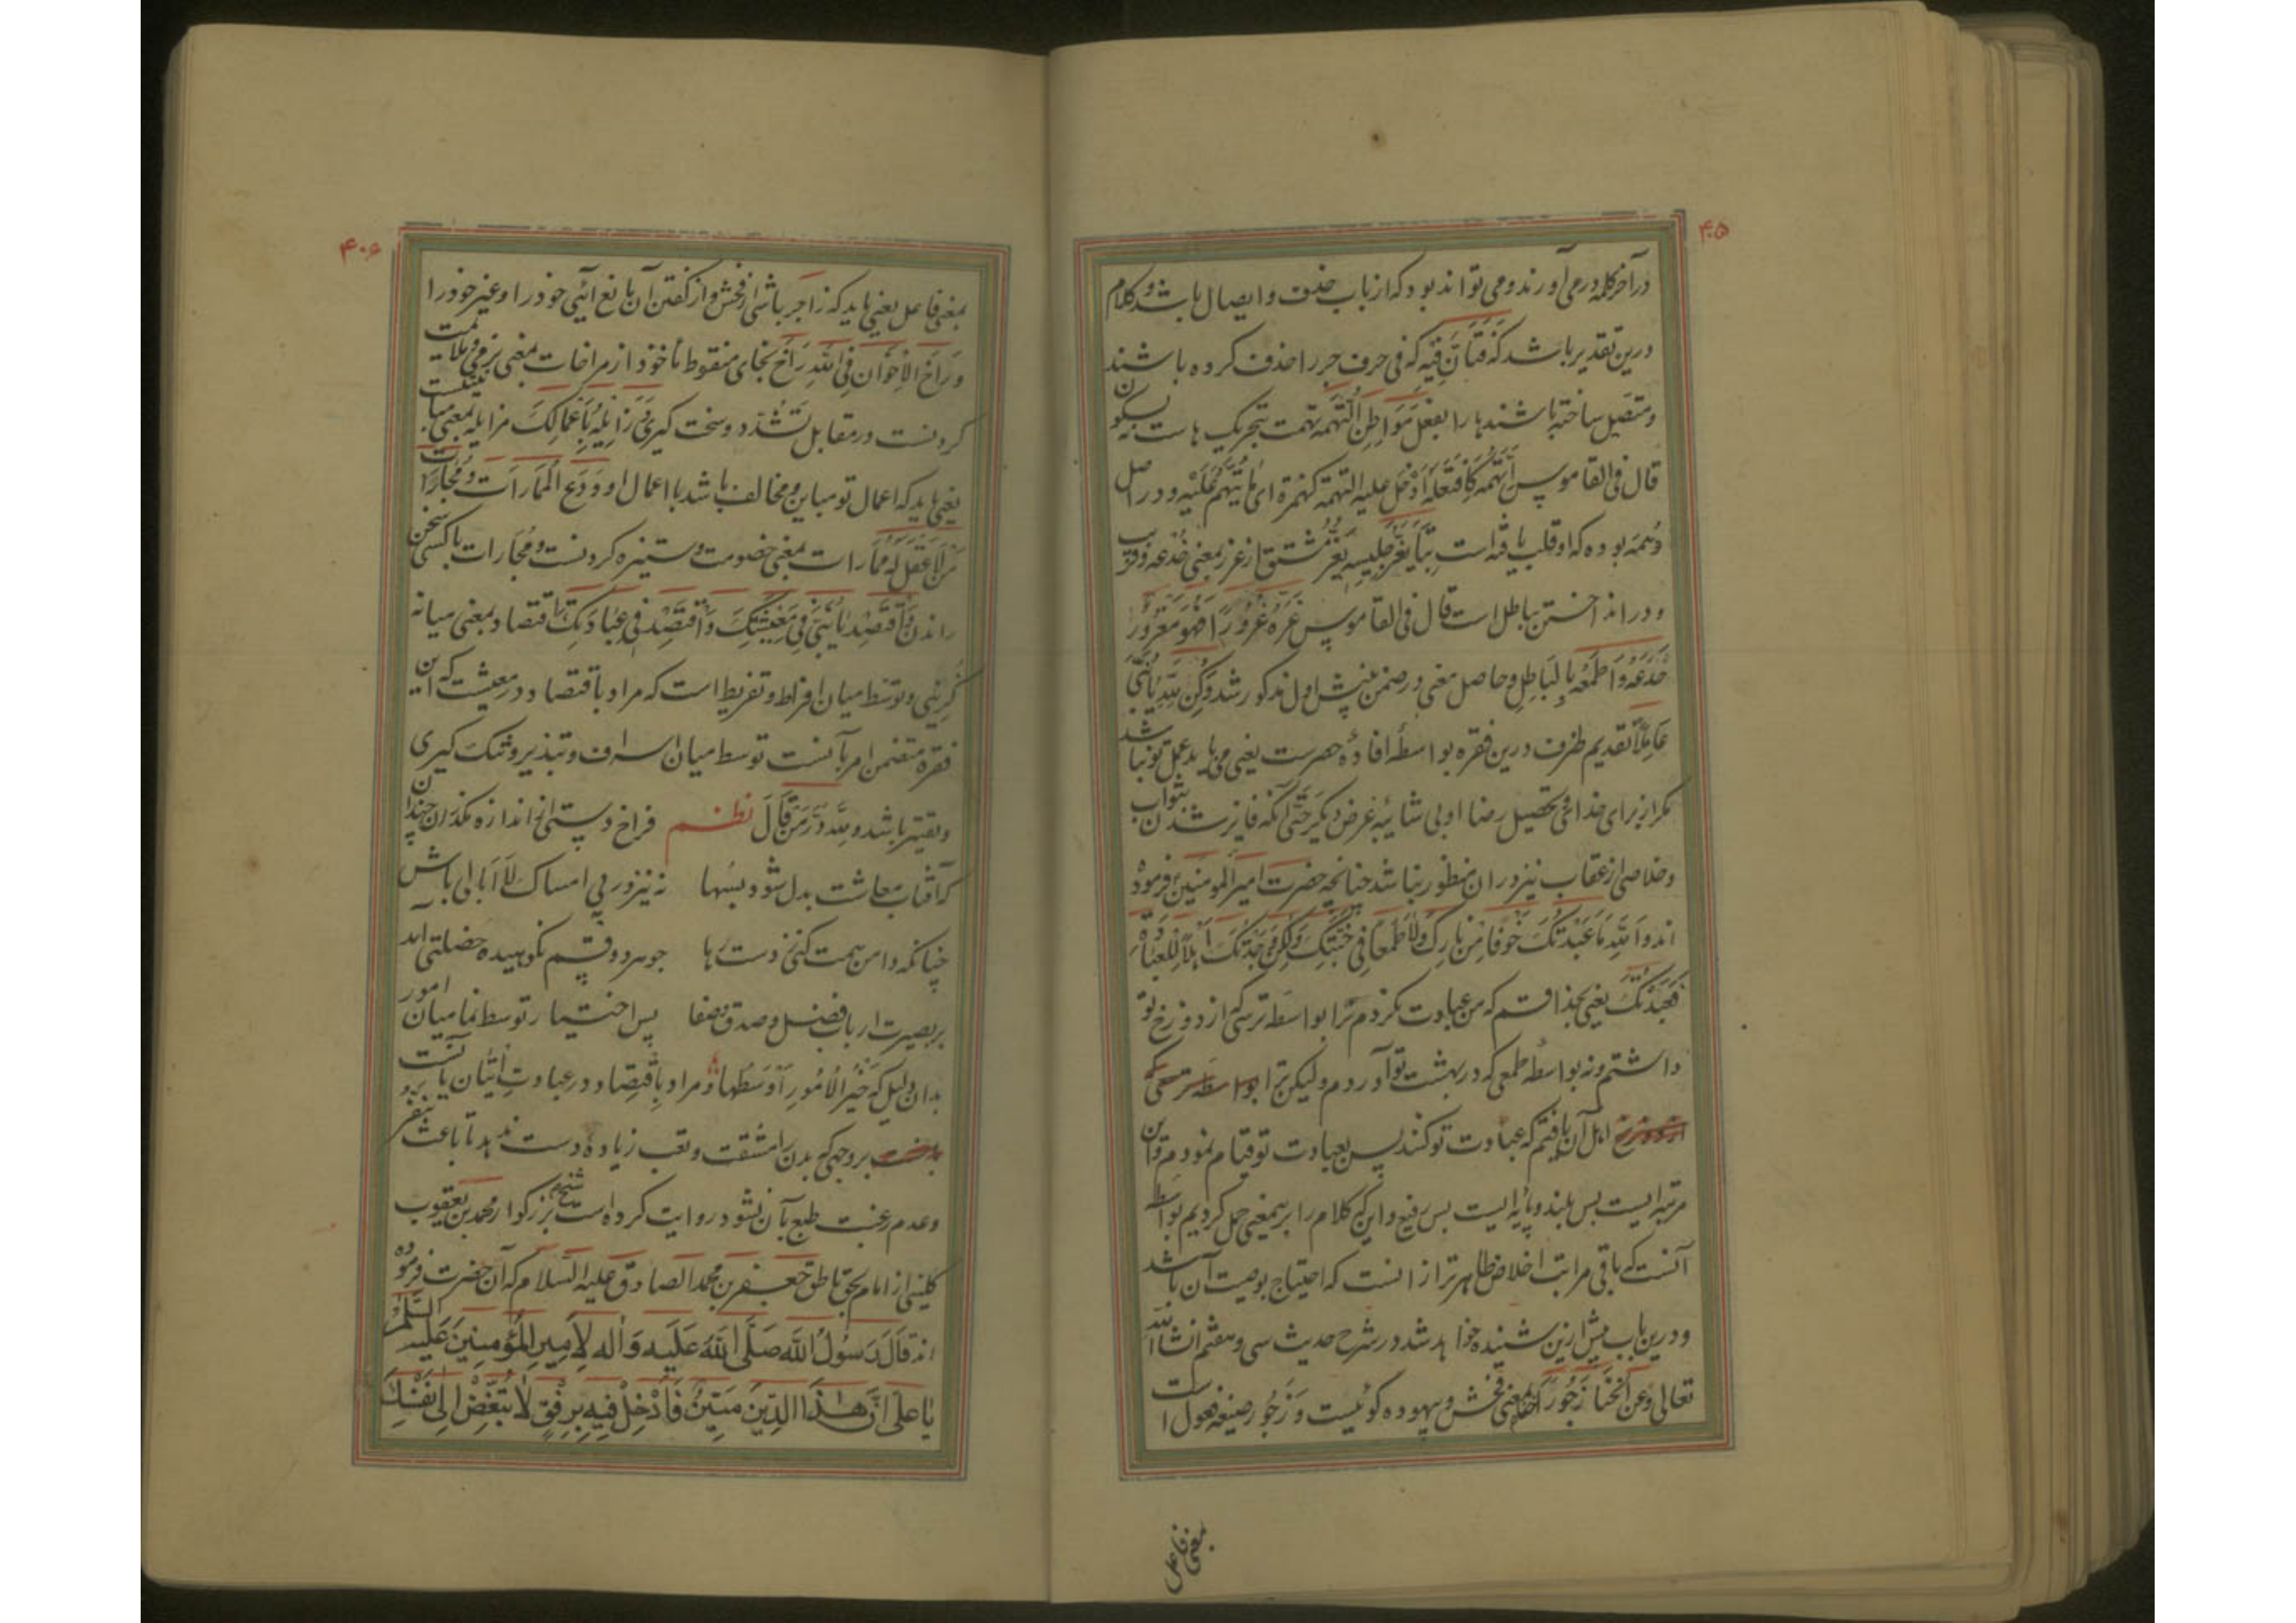 ۴۰۵
در آخر کلمه در می آورند و می تواند بود که از باب حذف و ایصال باشد و کلام
درین تقدیر باشد که فتأنّ فیه که فی حرف جر را حذف کرده باشند
و متصل ساخته باشند ها را بفعل مَوَاطِنَ التُّهَمَه تهمت بتحریک هاست نه بسکون
قال فی القاموس اَتْهَمَهُ کَافْتَعَلَهُ اَدْخَلَ علیه التهمة کهمزة ای مَا یُتَّهَمُ عَلَیْه و در اصل
وُهَمَه بوده که او قلب یافته است بتا یَغُرُّ جَلِیسِه یَغُرُّ مشتق از غر بمعنی خُدعه و فریب
و در انداختن بباطل است قال فی القاموس غَرَّهُ غُرُوْرًا فَهُوَ مَغْرُوْرٌ
خَدَعَهُ وَ اَطْمَعَهُ بِالْبَاطِلِ و حاصل معنی در ضمن پیش اول مذکور شد وَ کُنْ لِلّهِ یَا بُنَیَّ
عَامِلاً تقدیم ظرف درین فقره بواسطهٔ افادهٔ حصرست یعنی می باید عمل تو نباشد
مگر از برای خدا و تحصیل رضا او بی شائبهٔ غرض دیگر حتّی آنکه فایز شدن بثواب
و خلاصی از عقاب نیز در ان منظور نباشد چنانچه حضرت امیر المومنین فرموده
اند وَ اللهِ مَا عَبَدْتُكَ خَوْفًا مِنْ نَارِكَ وَ لَا طَمَعًا فِی جَنَّتِكَ وَ لٰكِنْ وَجَدْتُكَ اَهْلًا لِلْعِبَادَةِ
فَعَبَدْتُكَ یعنی بخدا قسم که من عبادت نکردم ترا بواسطه ترسی که از دوزخ تو
داشتم و نه بواسطهٔ طمعی که در بهشت تو آوردم ولیکن ترا بواسطه ترسی که
از دوزخ اهل آن یافتم که عبادت تو کنند پس بعبادت تو قیام نمودم و این
مرتبه ایست بس بلند و پایه ایست بس رفیع و این که کلام را برین معنی حمل کردیم بواسطه
آنست که باقی مراتب اخلاص ظاهر تر از انست که احتیاج بوصیت آن باشد
و درین باب بیش ازین شنیده خواهد شد در شرح حدیث سی و هفتم انشاالله
تعالی وَ عَنِ الْخَنَا زَجُوْرًا بمعنی فحش و بیهوده گوئیست و زَجُور صیغه فعول است
بمعنی فاعل
۴۰۶
بمعنی فاعل یعنی باید که زاجر باشی از فحش و از گفتن آن بانع آئی خود را و غیر خود را
وَ رَاخِ الْاِخْوَانَ فِی اللهِ رَاخِ بخای منقوط مأخوذ از مراخات بمعنی نرمی و ملایمت
کردنست در مقابل تَشَدُّد و سخت گیری وَ زَایِلْهُ بِاَعْمَالِكَ مزایله بمعنی مباینتست
یعنی باید که اعمال تو مباین و مخالف باشد با اعمال او وَ دَعِ الْمُمَارَاتَ وَ مُجَارَاتَ
مَنْ لَا عَقْلَ لَهُ مُمَارات بمعنی خصومت و ستیزه کردنست و مُجَارات با کسی سخن
راندن وَ اقْتَصِدْ یَا بُنَیَّ فِی مَعِیْشَتِكَ وَ اقْتَصِدْ فِی عِبَادَتِكَ اقتصاد بمعنی میانه
گزینی و توسّط میان افراط و تفریط است که مراد باقتصاد در معیشت که این
فقره متضمن امر بآنست توسط میان اسراف و تبذیر و تنگ گیری
و تقتیر باشد و لِلّهِ دَرُّ مَنْ قَالَ نظم فراخ دستی ز اندازه مگذران چندان
که آفتاب معاشت بدل شود بسها نه نیز در پی امساک لا ابالی باش
چنانکه دامن همت کنی ز دست رها چو هر دو قسم نکوهیده خصلتی اید
بر بصیرت ارباب فضل و صدق و صفا پس اختیار توسط نما میان امور
بدان دلیل که خَیْرُ الْاُمُورِ اَوْسَطُهَا و مراد بِاقْتِصاد در عبادت اتیان بآنست
بروجهی که بدن را مشقت و تعب زیاده دست ندهد تا باعث تنفر
و عدم رغبت طبع بآن نشود روایت کرده است شیخ بزرگوار محمد بن یعقوب
کلینی از امام بحق ناطق جعفر بن محمد الصادق علیه السلام که آن حضرت فرموده
اند قَالَ رَسُولُ اللهِ صَلَّی اللهُ عَلَیْهِ وَ اٰلِه لِاَمِیرِ الْمُؤْمِنِیْنَ عَلَیْهِ السَّلٰمُ
یَا عَلِیُّ اِنَّ هٰذَا الدِّیْنَ مَتِیْنٌ فَاَدْخِلْ فِیهِ بِرِفْقٍ لَا تُبَغِّضْ اِلٰی نَفْسِكَ